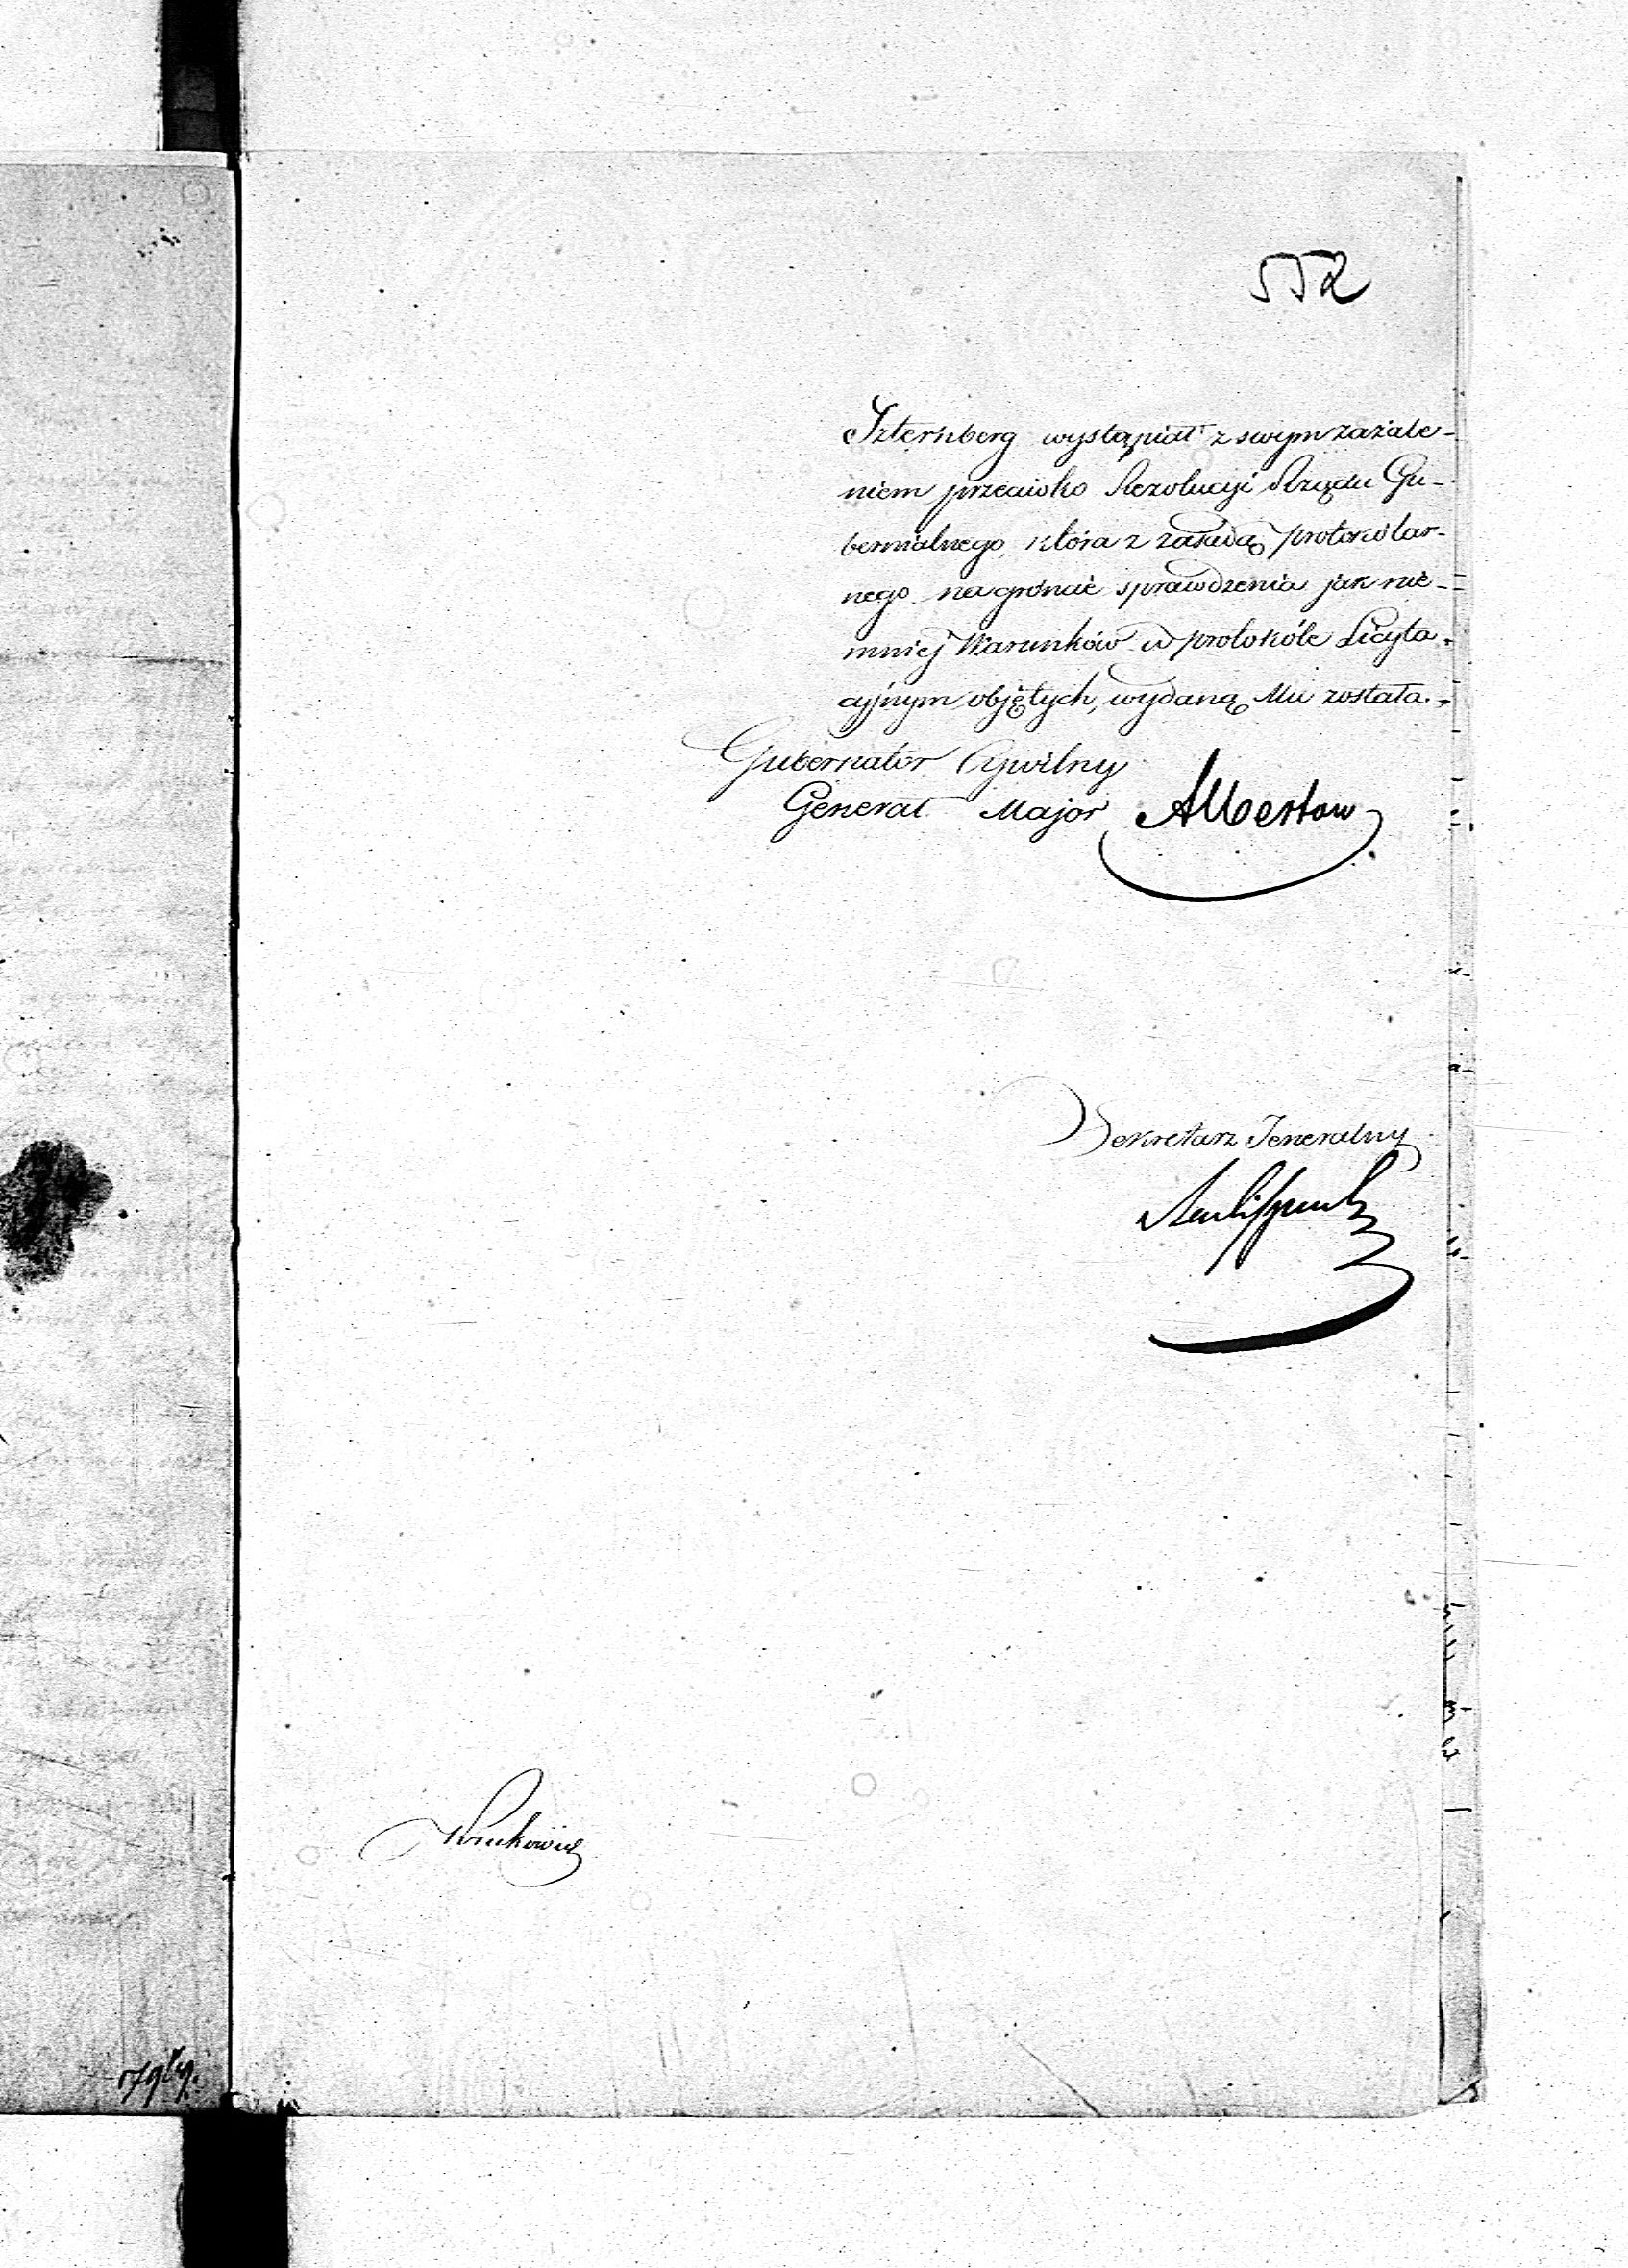 552
Szternberg wystąpiał z swym zażale-
niem przeciwko Rezolucyi Rządu Gu-
bernialnego, która z zasadą protokólar-
nego na gróncie sprawdzenia jak nie-
mniej Warunków w protokóle Licyta-
cyjnym objętych, wydaną Mu została.
Gubernator Cywilny
Generał Major Albertow
Sekretarz Jeneralny